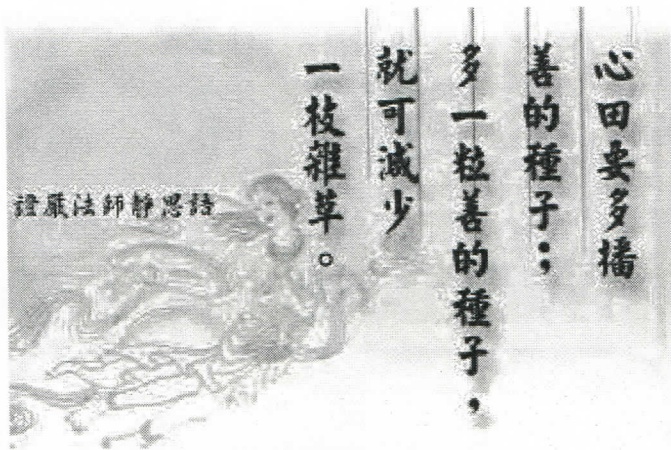 心田要多播
善的種子；
多一粒善的種子，
就可減少
一枝雜草。
證嚴法師靜思語